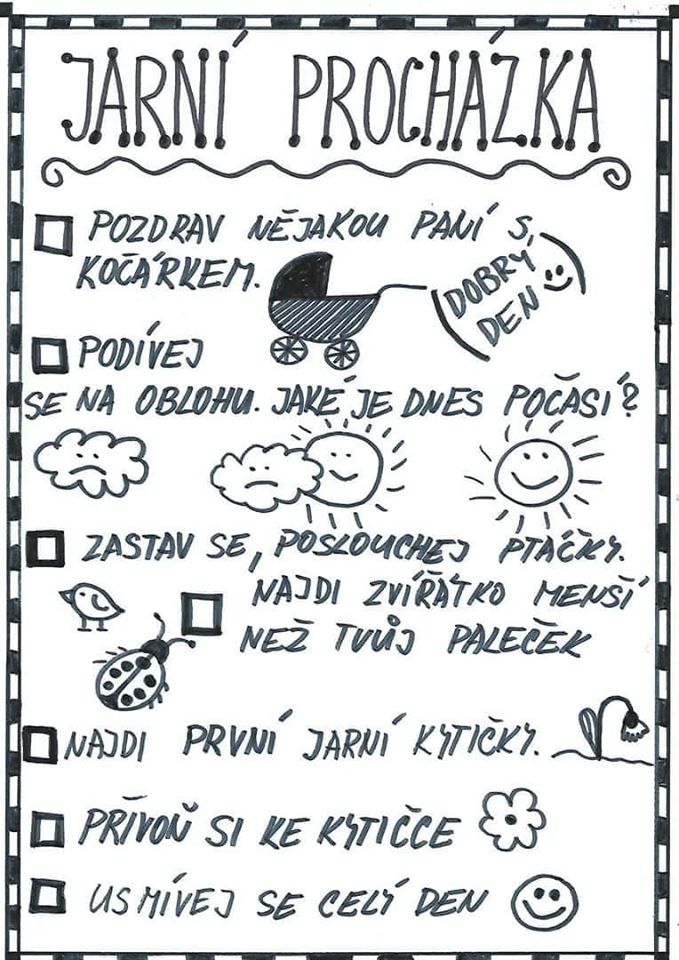 JARNÍ PROCHÁZKA
POZDRAV NĚJAKOU PANÍ S
KOČÁRKEM.
DOBRÝ
DEN
PODÍVEJ
SE NA OBLOHU. JAKÉ JE DNES POČASÍ?
ZASTAV SE, POSLOUCHEJ PTÁČKY.
NAJDI ZVÍŘÁTKO MENŠÍ
NEŽ TVŮJ PALEČEK
NAJDI PRVNÍ JARNÍ KYTIČKY.
PŘÍVOŇ SI KE KYTIČCE
USMÍVEJ SE CELÍ DEN